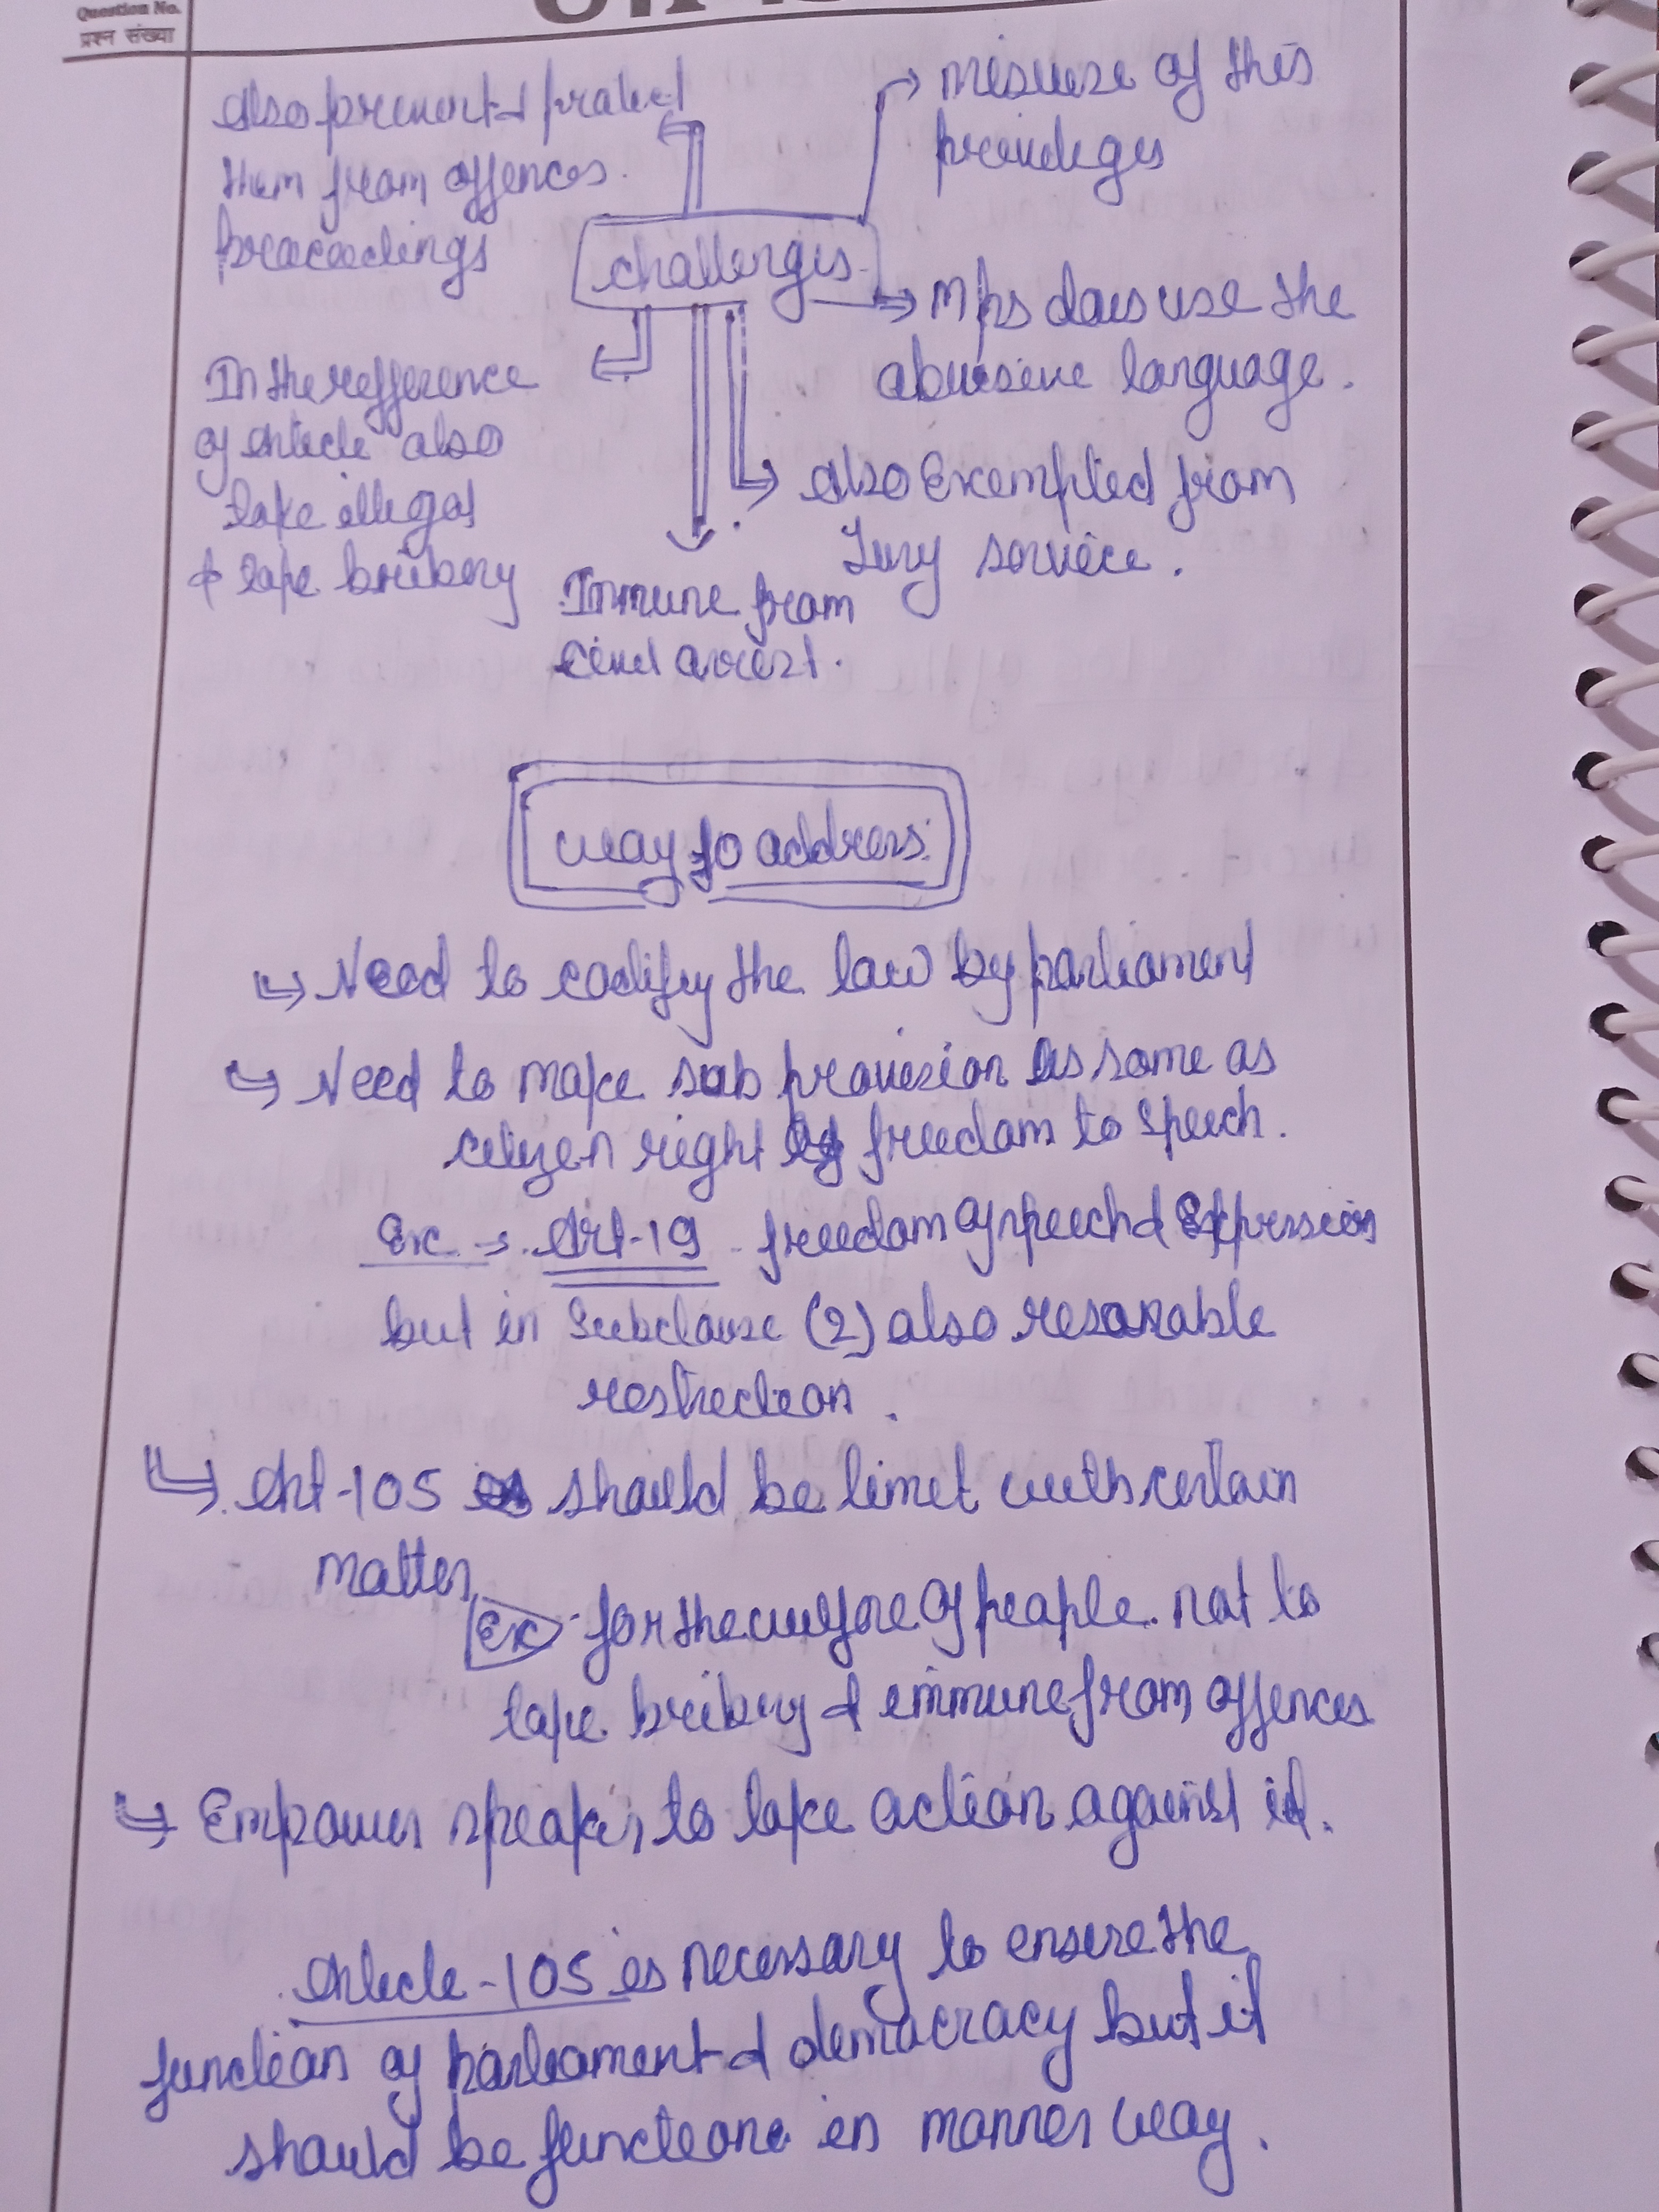 Question No.
प्रश्न संख्या
also prevent & protect
them from offences
proceedings
misuese of this
previleges
challenges
Mps does use the
abuesive language.
In the refference
of article also
take illegal
& take bribery
also Exempted from
Jury service.
Immune from
Civil arrest.
way to address:
Need to codify the law by parliament
Need to make sub provision as same as
citizen right of freedom to speech.
Ex → Art-19 freedom of speech & Expression
but in Subclause (2) also resonable
restriction.
Art-105 should be limit with certain
matter
Ex - for the welfare of people not to
take bribery & immune from offences
Empower speaker to take action against it.
Article-105 is necessary to ensure the
function of parliament & democracy but it
should be functione in manner way.